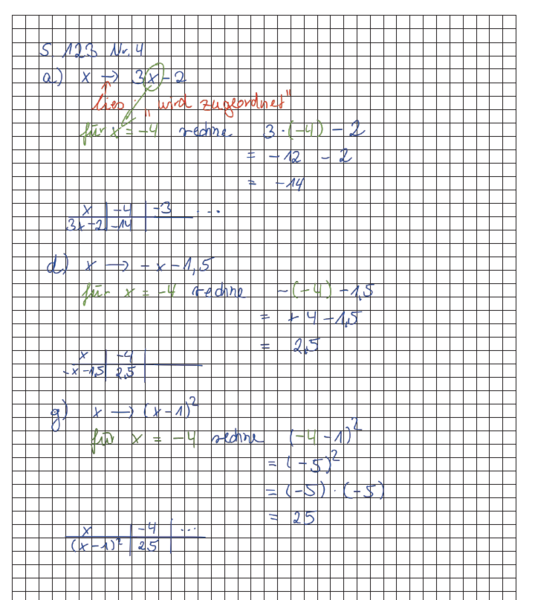 S 123 Nr. 4
a) x → 3x - 2
lies "wird zugeordnet"
für x = -4 rechne 3 · (-4) - 2
= -12 - 2
= -14
x | -4 | -3 ...
3x-2 | -14
d) x → -x - 1,5
für x = -4 rechne -(-4) - 1,5
= +4 - 1,5
= 2,5
x | -4
-x-1,5 | 2,5
g) x → (x-1)²
für x = -4 rechne (-4-1)²
= (-5)²
= (-5) · (-5)
= 25
x | -4 | ...
(x-1)² | 25